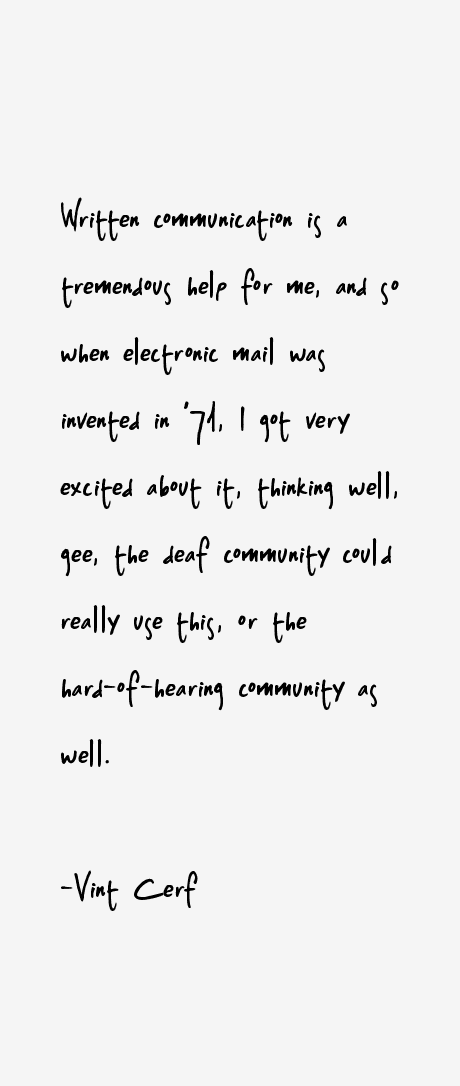 Written communication is a
tremendous help for me, and so
when electronic mail was
invented in '71, I got very
excited about it, thinking well,
gee, the deaf community could
really use this, or the
hard-of-hearing community as
well.
-Vint Cerf